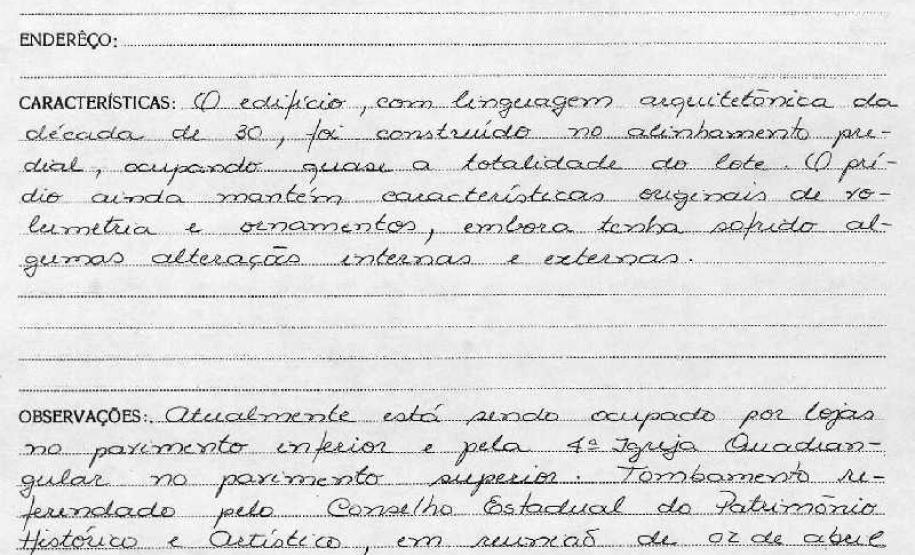 ENDERÊÇO:
CARACTERÍSTICAS: O edifício, com linguagem arquitetônica da
década de 30, foi construído no alinhamento pre-
dial, ocupando quase a totalidade do lote. O pré-
dio ainda mantém características originais de vo-
lumetria e ornamentos, embora tenha sofrido al-
gumas alterações internas e externas.
OBSERVAÇÕES: Atualmente está sendo ocupado por lojas
no pavimento inferior e pela 4ª Igreja Quadran-
gular no pavimento superior. Tombamento re-
ferendado pelo Conselho Estadual do Patrimônio
Histórico e Artístico, em reunião de 02 de abril